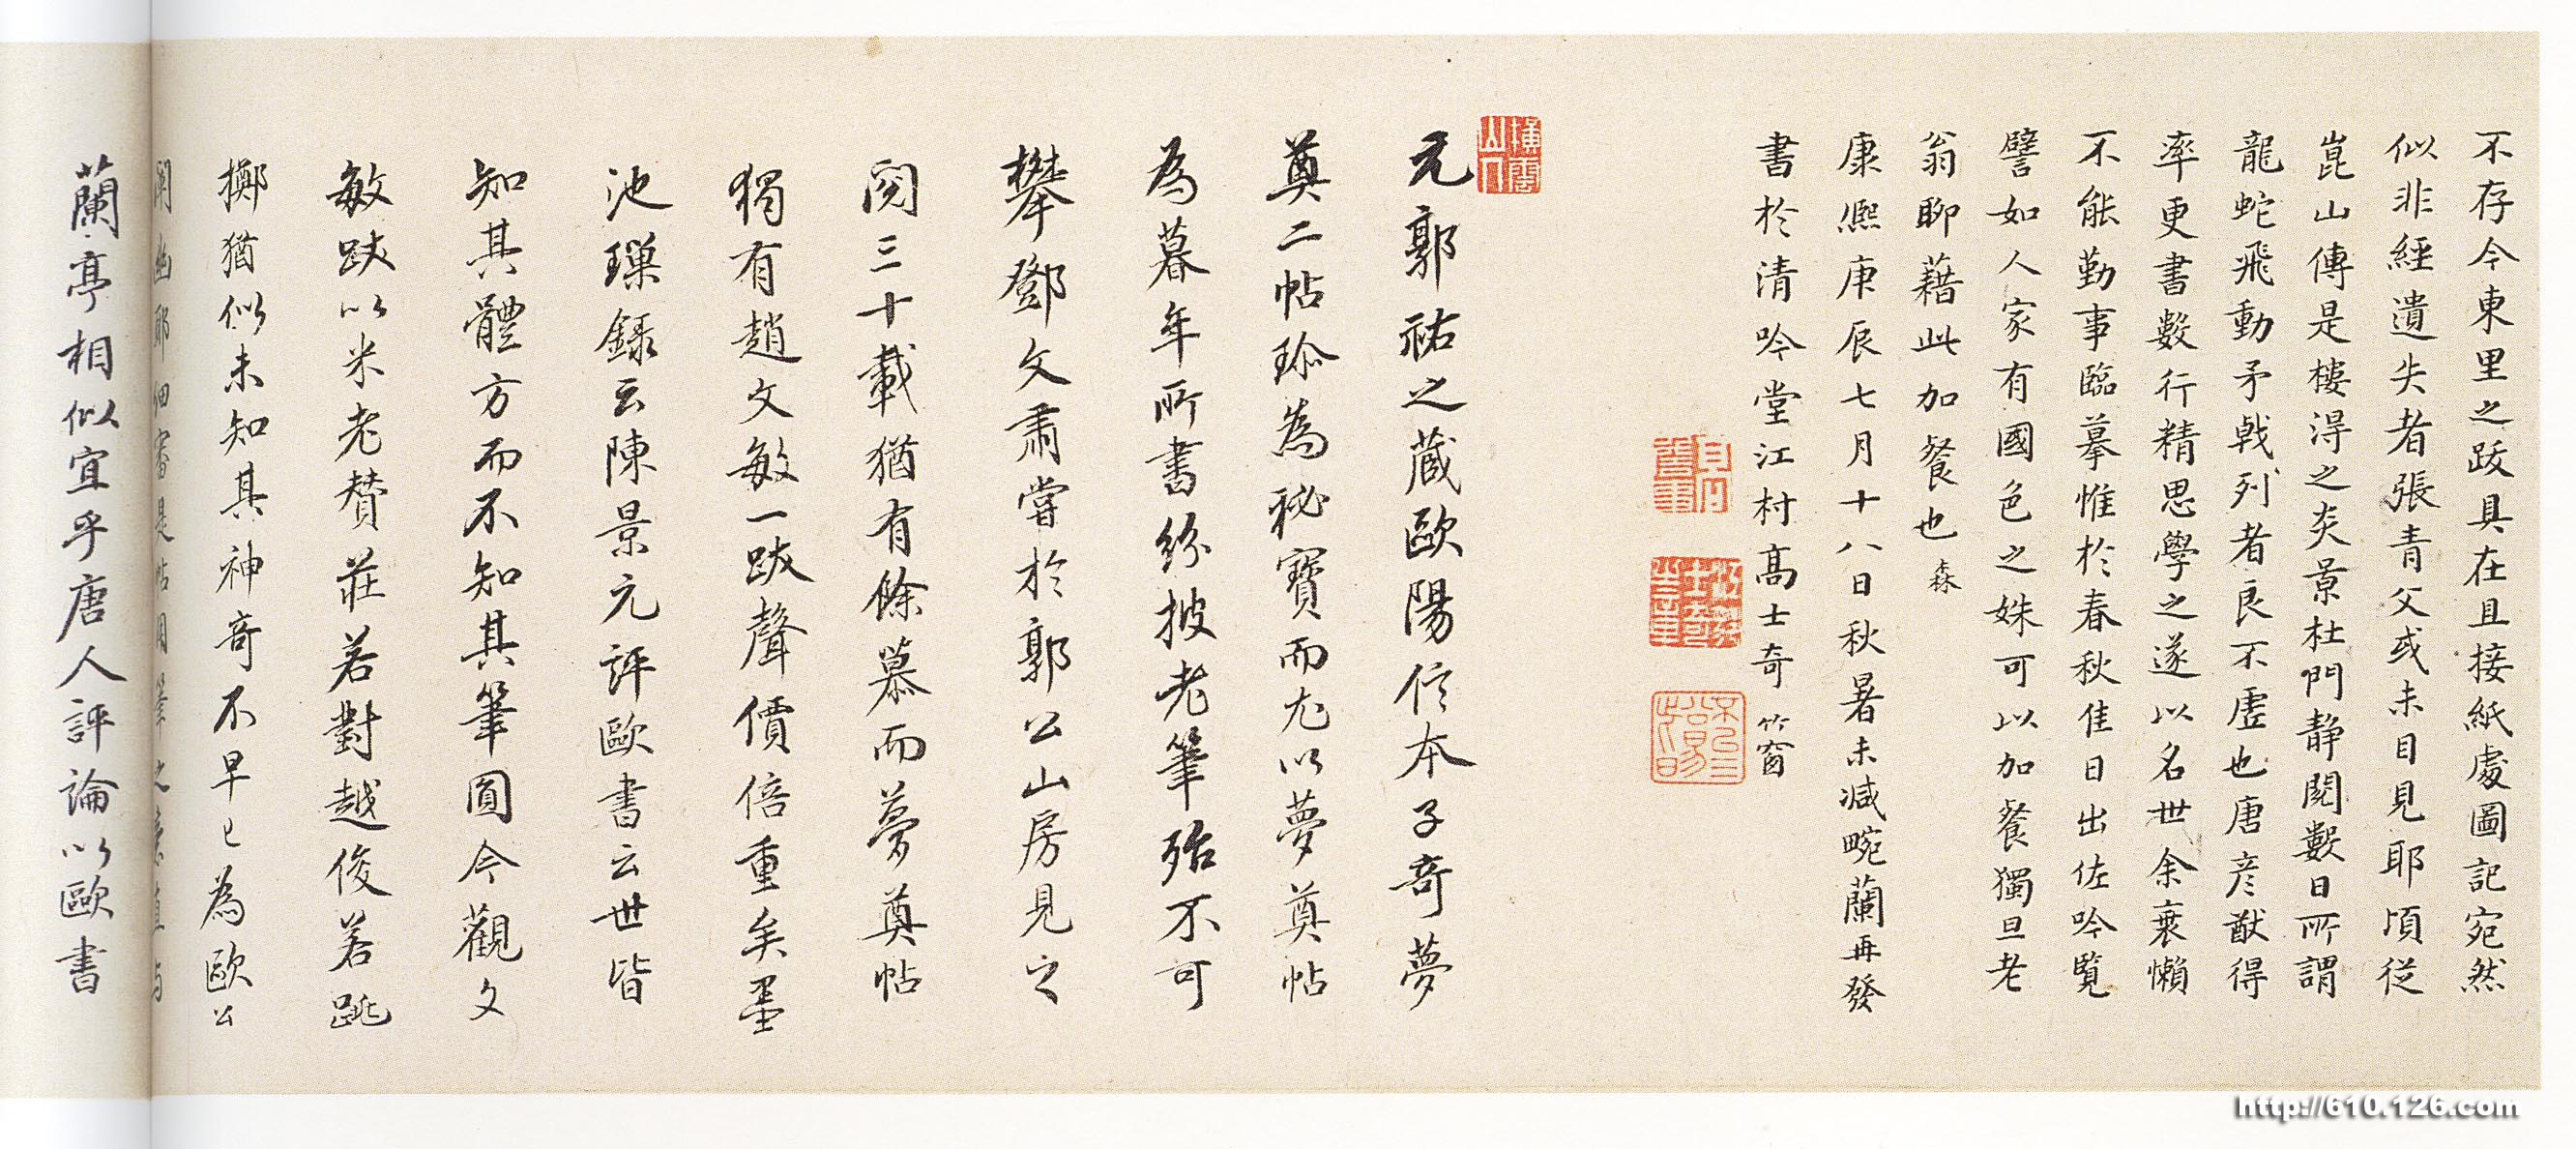 不存今東里之跋具在且接紙處圖記宛然
似非經遺失者張青父或未目見耶頃從
崑山傳是樓得之炎景杜門靜閱數日所謂
龍蛇飛動矛戟列者良不虛也唐彦猷得
率更書數行精思學之遂以名世余衰懶
不能勤事臨摹惟於春秋佳日出佐吟覧
譬如人家有國色之姝可以加餐獨旦老
翁聊藉此加餐也 森
康熙庚辰七月十八日秋暑未減畹蘭再發
書於清吟堂江村髙士奇 竹窗
元郭祐之蔵歐陽信本子奇夢
奠二帖珎為祕寶而尤以夢奠帖
為暮年所書紛披老筆殆不可
攀鄧文肅嘗於郭公山房見之
閱三十載猶有餘慕而夢奠帖
獨有趙文敏一跋聲價倍重矣墨
池璅録云陳景元評歐書云世皆
知其體方而不知其筆圓今觀文
敏跋以米老賛莊若對越俊若跳
擲猶似未知其神奇不早已為歐公
闡幽耶細審是帖用筆之意直与
蘭亭相似宜乎唐人評論以歐書
http://610.126.com